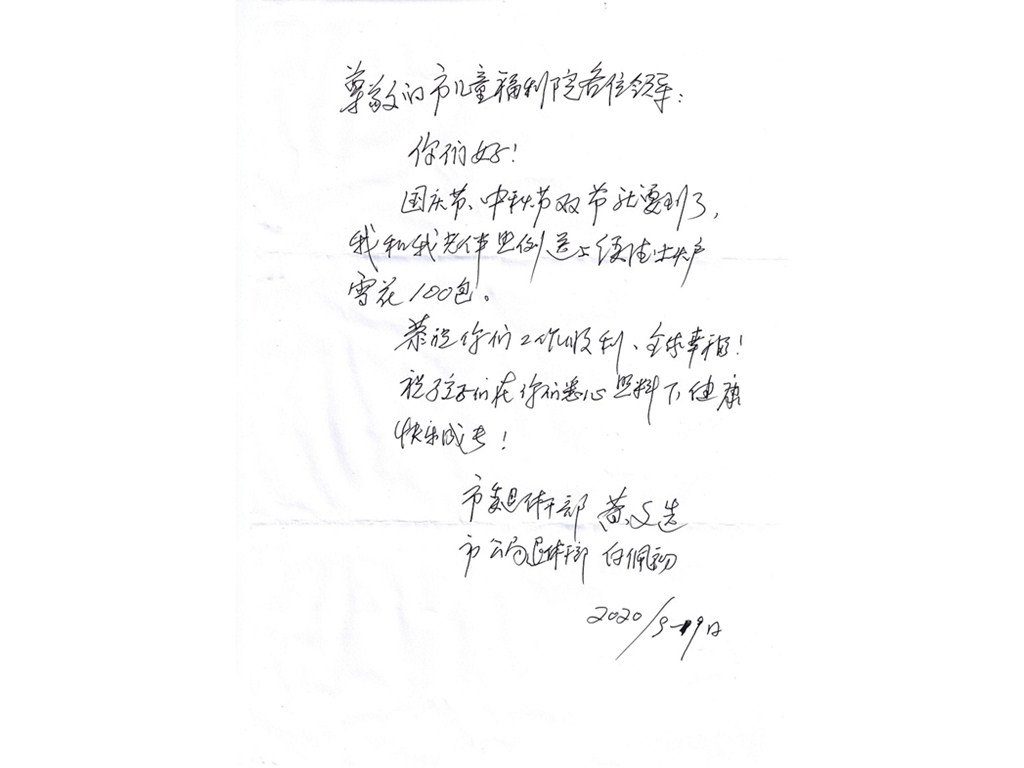 尊敬的市儿童福利院各位领导：
你们好！
国庆节、中秋节双节就要到了，
我和我老伴照例送上绥德土特产
雪花100包。
恭祝你们工作顺利、全家幸福！
祝孩子们在你们悉心照料下健康
快乐成长！
市委退休干部 黄文选
市公局退休干部 白佩
2020/9-19日